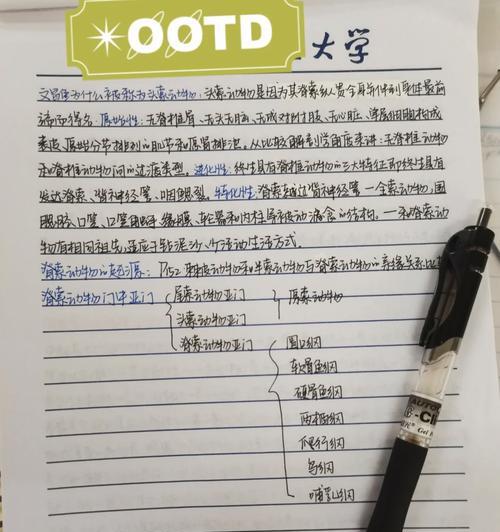 OOTD
大学
文昌鱼为什么被称为头索动物:头索动物是因为其脊索纵贯全身并伸到身体最前
端而得名.原始性:无脊椎骨、无头无脑、无成对附肢、无心脏、单层细胞构成
表皮、原始分节排列的肌节和原肾排泄。从比较解剖学角度来讲:无脊椎动物
和脊椎动物间的过渡类型.进化性:终生具有脊椎动物的三大特征即终生具有
发达脊索、背神经管、咽鳃裂.特化性:脊索超过背神经管一全索动物,围
鳃腔、口笠、口笠触须、缘膜、轮器和内柱等被动滤食的结构,一和脊索动
物有相同祖先,适应于钻泥沙、少活动生活方式.
脊索动物的起源:P152 棘皮动物和半索动物与脊索动物的亲缘关系比
脊索动物门3亚门
尾索动物亚门
头索动物亚门
原索动物
脊索动物亚门
圆口纲
软骨鱼纲
硬骨鱼纲
两栖纲
爬行纲
鸟纲
哺乳纲